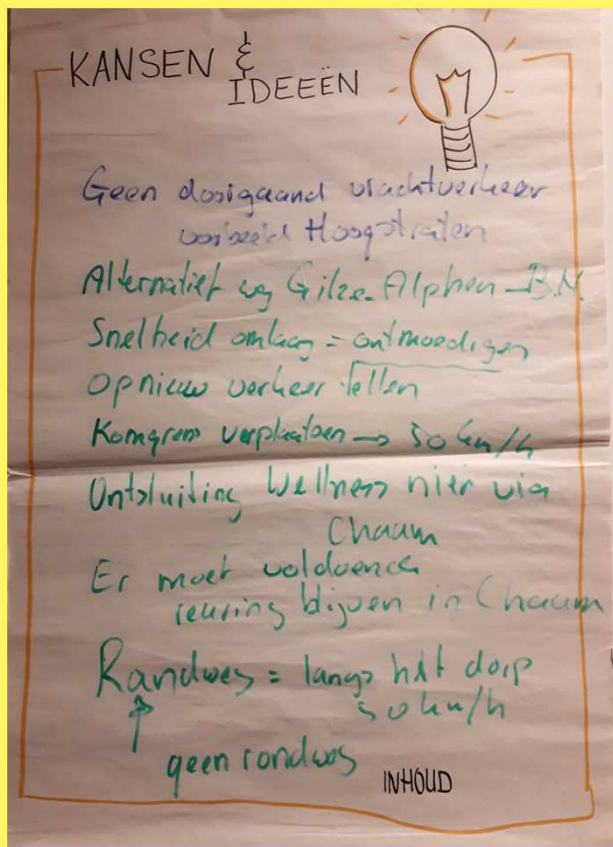 KANSEN &
IDEEËN
Geen doorgaand vrachtverkeer
voorbeeld Hoogstraten
Alternatief weg Gilze-Alphen-B.N.
Snelheid omlaag = ontmoedigen
Opnieuw verkeer tellen
Komgrens verplaatsen → 50 km/h
Ontsluiting Wellness niet via
Chaam
Er moet voldoende
reuring blijven in Chaam
Randweg = langs het dorp
50 km/h
geen rondweg
INHOUD